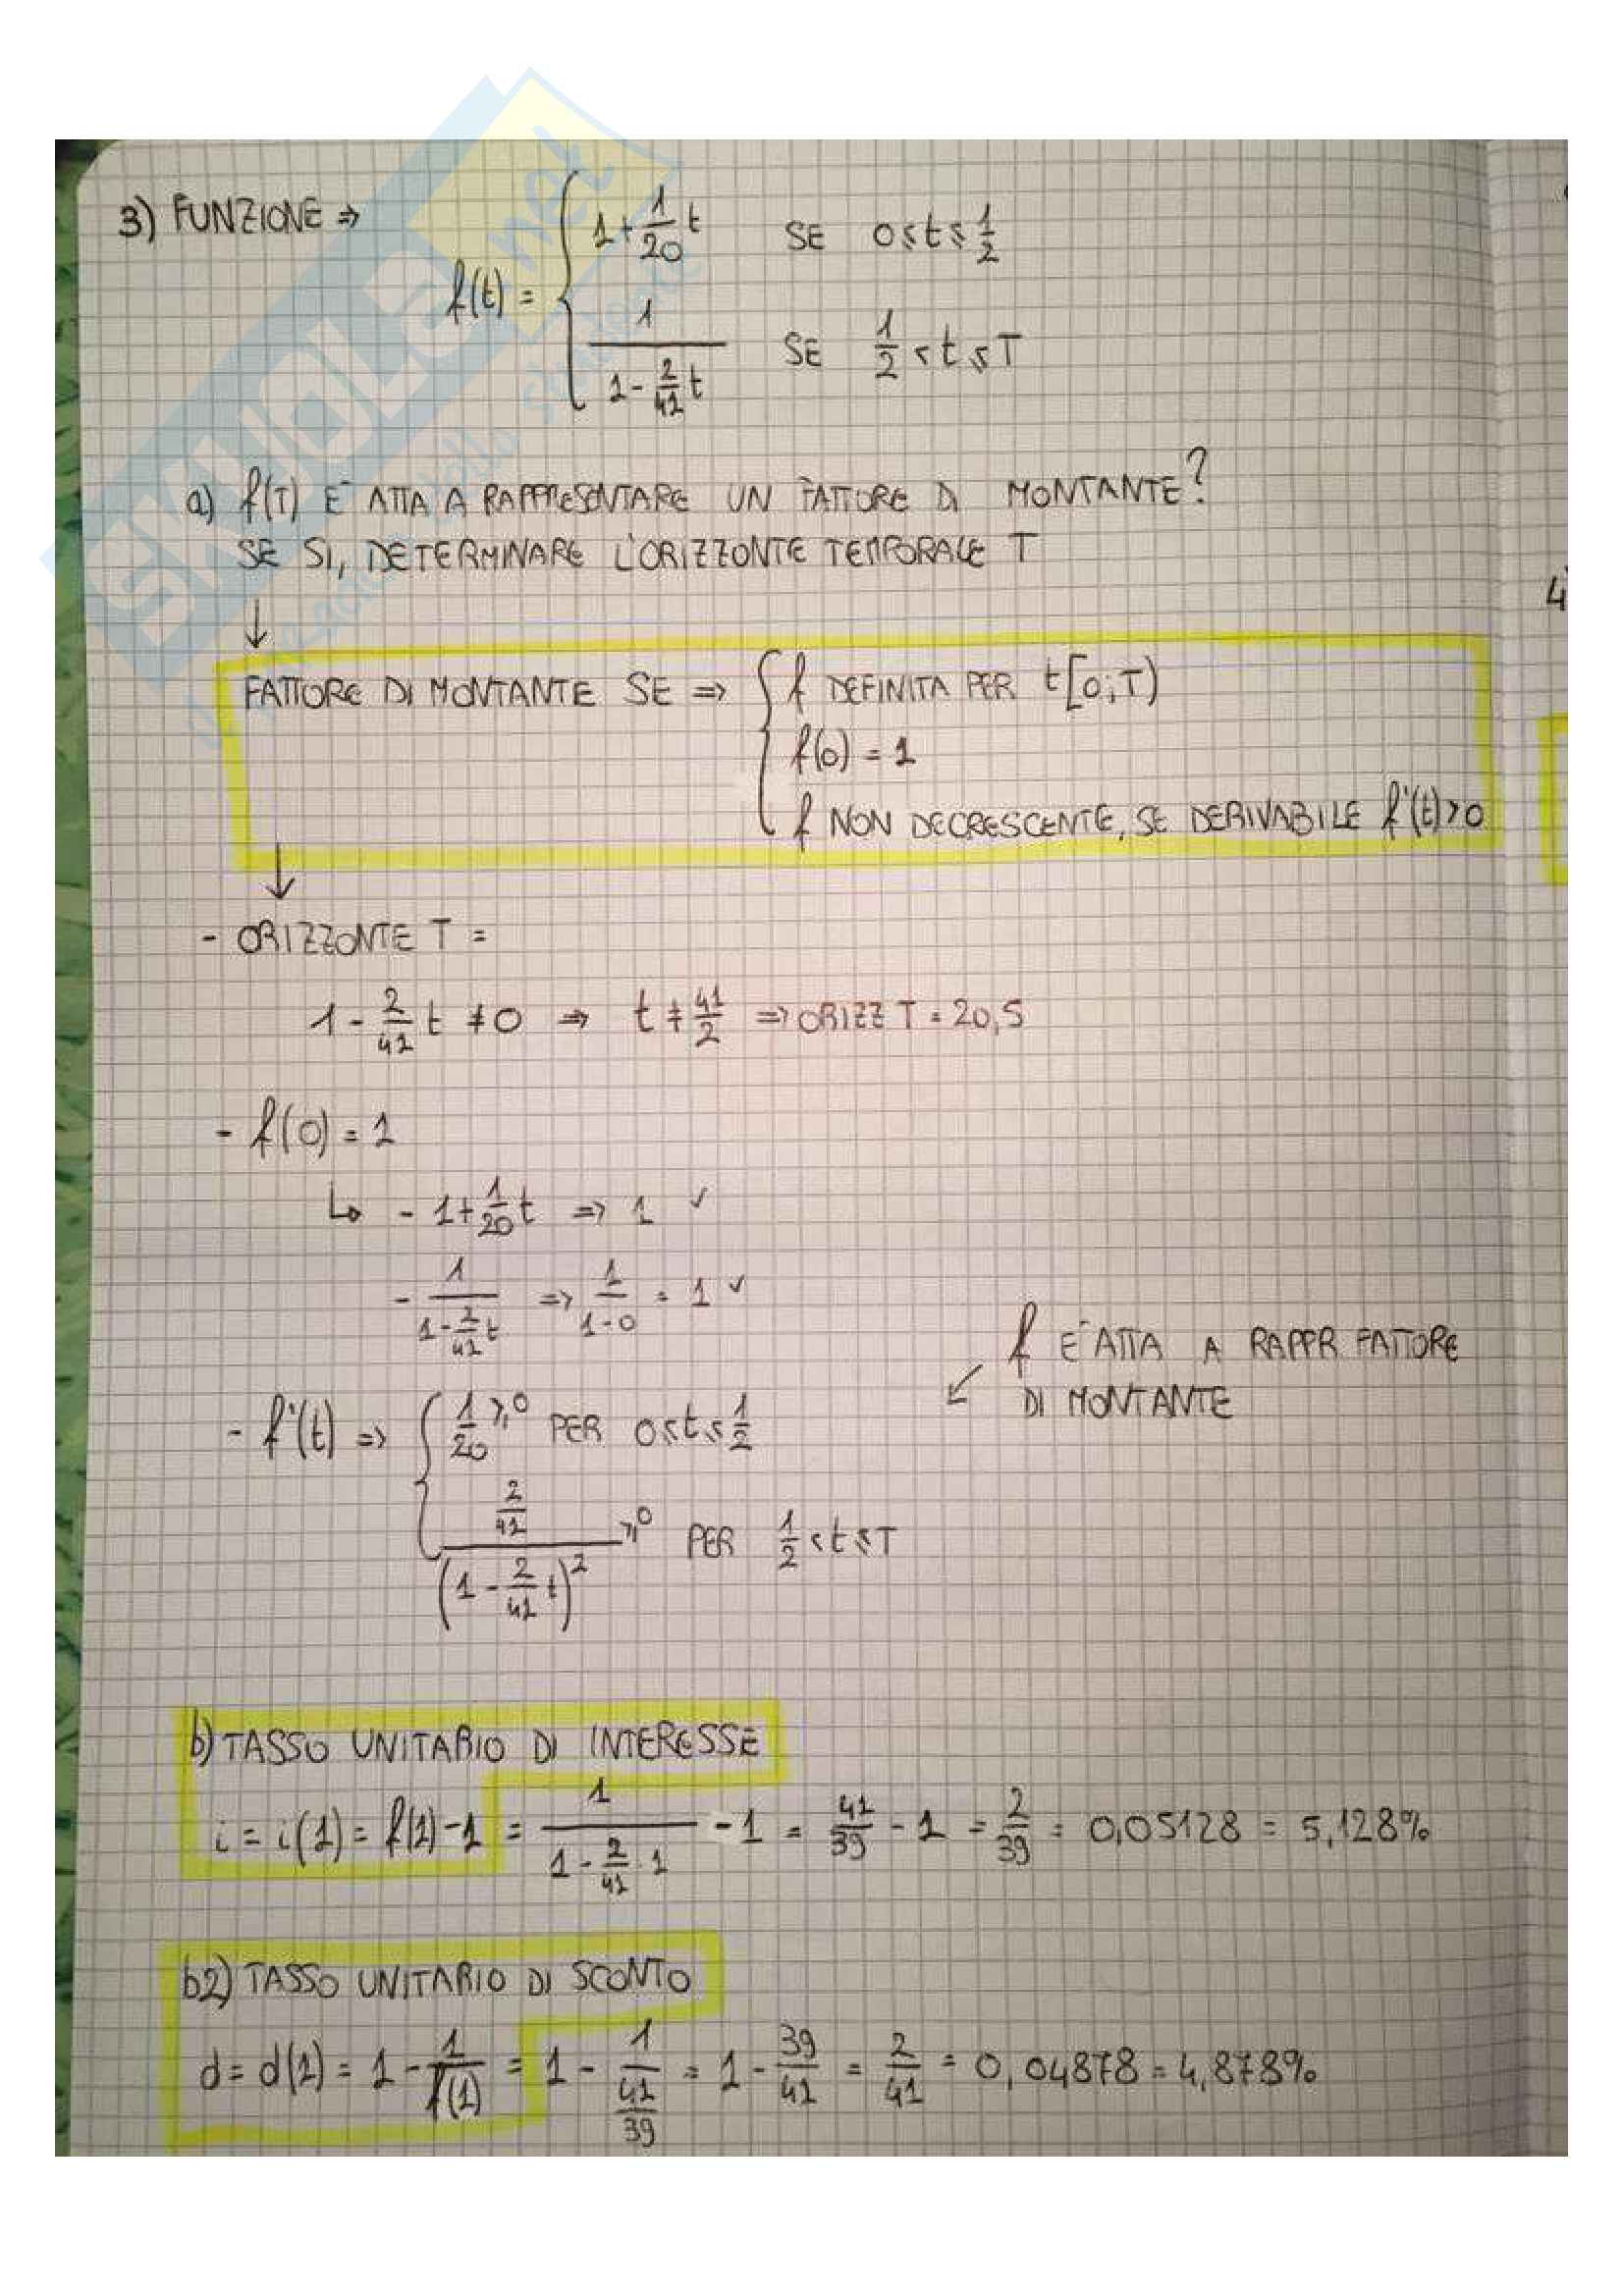 3) FUNZIONE ⇒
f(t) = { 1 + 1/20 t SE 0 ≤ t ≤ 1/2
1/(1 - 2/41 t) SE 1/2 < t ≤ T
a) f(T) E' ATTA A RAPPRESENTARE UN FATTORE DI MONTANTE?
SE SI, DETERMINARE L'ORIZZONTE TEMPORALE T
↓
FATTORE DI MONTANTE SE ⇒ { f DEFINITA PER t[0;T)
f(0) = 1
f NON DECRESCENTE, SE DERIVABILE f'(t) > 0
↓
- ORIZZONTE T =
1 - 2/41 t ≠ 0 ⇒ t ≠ 41/2 ⇒ ORIZZ T = 20,5
- f(0) = 1
↳ - 1 + 1/20 t ⇒ 1 ✓
- 1/(1 - 2/41 t) ⇒ 1/(1-0) = 1 ✓
f E' ATTA A RAPPR FATTORE
↙ DI MONTANTE
- f'(t) ⇒ { 1/20 ≥ 0 PER 0 ≤ t ≤ 1/2
(2/41)/(1 - 2/41 t)² ≥ 0 PER 1/2 < t ≤ T
b) TASSO UNITARIO DI INTERESSE
i = i(1) = f(1) - 1 = 1/(1 - 2/41 · 1) - 1 = 41/39 - 1 = 2/39 = 0,05128 = 5,128%
b2) TASSO UNITARIO DI SCONTO
d = d(1) = 1 - 1/f(1) = 1 - 1/(41/39) = 1 - 39/41 = 2/41 = 0,04878 = 4,878%
4)
SKUOLA.net